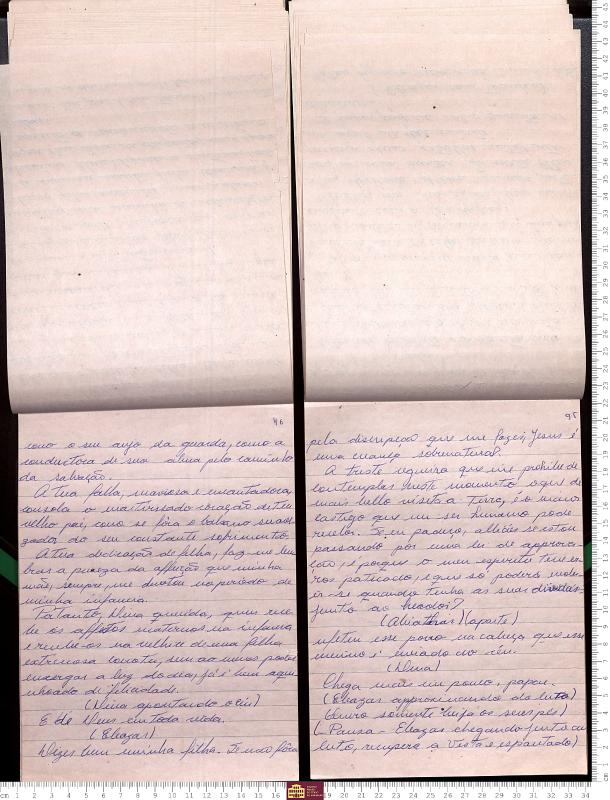 46
como o seu anjo da guarda, como a
conductora de sua alma pelo caminho
da salvação.
A tua falla, maviosa e encantadora,
consola o martirisado coração de teu
velho pae, como se fôra o balsamo suavi
zador do seu constante sofrimento.
A tua dedicação de filha, faz-me lem
brar a pureza da affeição que minha
mãe, sempre me devotou no periodo de
minha infancia.
Portanto, Dina querida, quem rece
be os affetos maternos na infancia
e recebe-os na velhice de uma filha
extremosa como tu, sem ao menos poder
enxergar a luz do dia, já é bem aqui
nhoado de felicidade.
(Dina apontando o céu)
E de Deus em toda vida.
(Eleazar)
Dizes bem minha filha. Se não fôra
95
pela discripção que me fazes, Jesus é
uma criança sobrenatural.
A triste cegueira que me prohibe de
contemplar neste momento o que de
mais bello visita a Terra, é o maior
castigo que um ser humano pode
receber. Se eu padeço, allivio se estou
passando por uma lei de aprova
ção, é porque o meu espirito tem er
ros praticado, e que só poderá
quando tenha as suas dividas
junto ao
(aparte)
esse povo na cabeça que esse
menino é enviado do céu.
(Dina)
Chega mais um pouco, papae.
(Eleazar approximando do leito)
somente os seus pés)
(Pausa - Eleazar chegando junto ao
leito, recupera a vista e espantado)